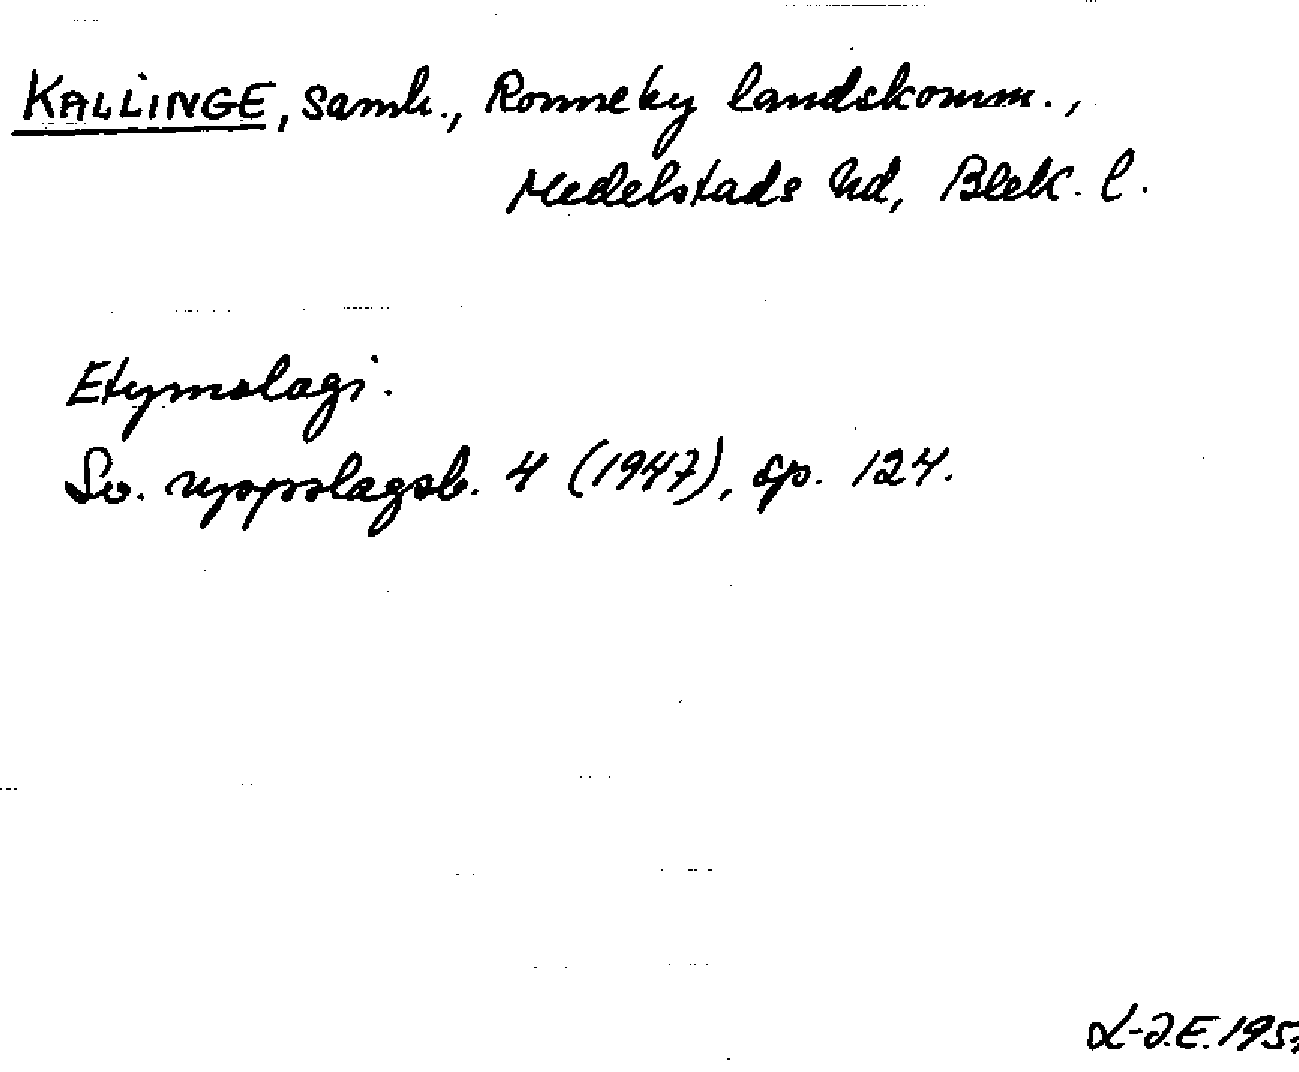 KALLINGE, samh., Ronneby landskomm.,
Medelstads hd, Blek. l.
Etymologi.
Sv. uppslagsb. 4 (1947), sp. 124.